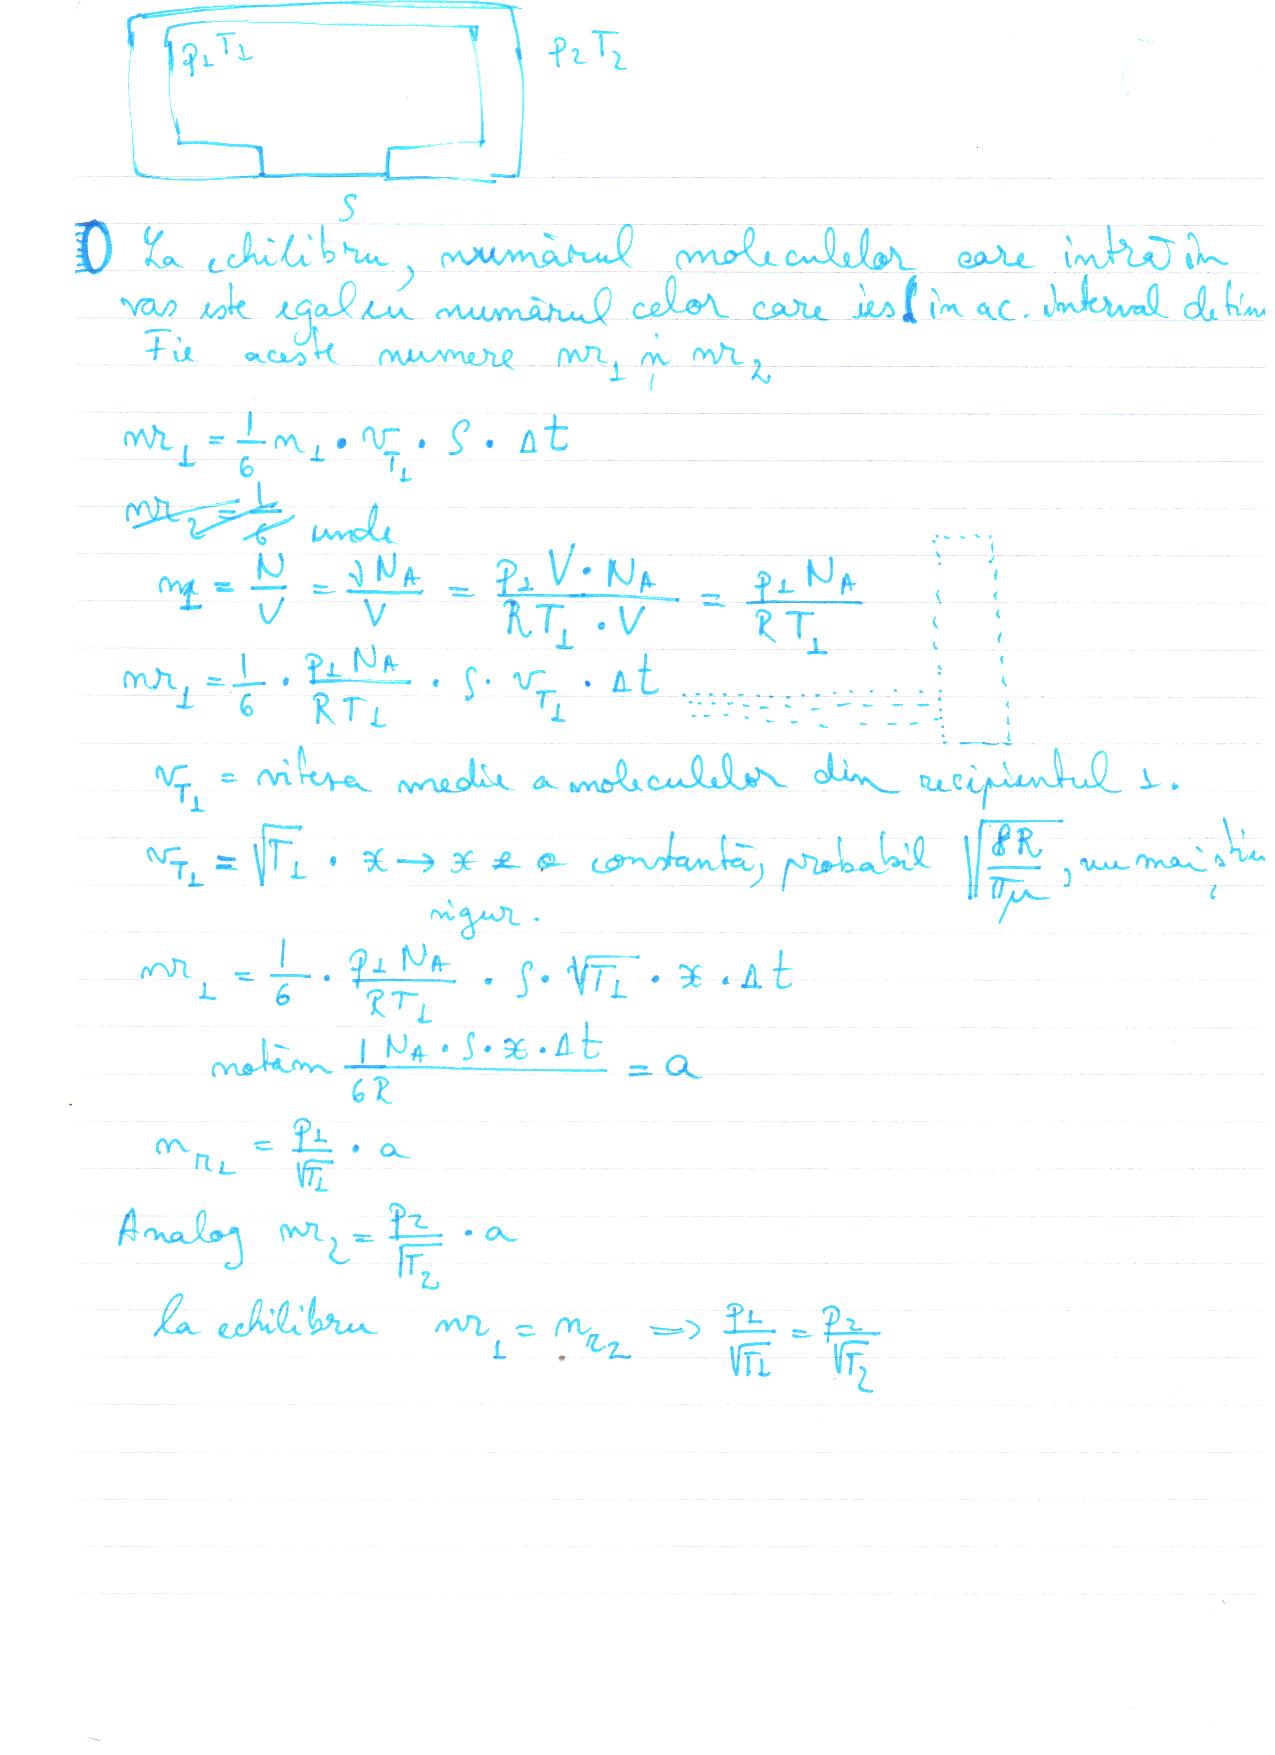 p₁T₁
p₂T₂
S
La echilibru, numărul moleculelor care intră în
vas este egal cu numărul celor care ies în ac. interval de tim
Fie aceste numere nr₁ și nr₂
nr₁ = 1/6 n₁ · v_T₁ · S · Δt
nr₂ = 1/6 unde
n₁ = N/V = νN_A/V = p₁V·N_A/RT₁·V = p₁N_A/RT₁
nr₁ = 1/6 · p₁N_A/RT₁ · S · v_T₁ · Δt
v_T₁ = viteza medie a moleculelor din recipientul 1.
v_T₁ = √T₁ · x → x e o constantă, probabil √(8R/πμ), nu mai știu
sigur.
nr₁ = 1/6 · p₁N_A/RT₁ · S · √T₁ · x · Δt
notăm 1 N_A·S·x·Δt/6R = a
nr₁ = p₁/√T₁ · a
Analog nr₂ = p₂/√T₂ · a
la echilibru nr₁ = nr₂ => p₁/√T₁ = p₂/√T₂